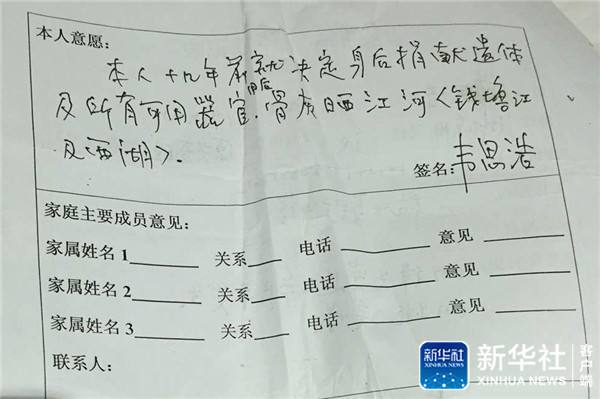 本人意愿:
本人十九年前就决定身后捐献遗体
及所有可用器官.骨灰晒江河<钱塘江
及西湖>.
签名:韦思浩
家庭主要成员意见:
家属姓名1______ 关系____ 电话______ 意见______
家属姓名2______ 关系____ 电话______ 意见______
家属姓名3______ 关系____ 电话______ 意见______
联系人:
新华社 新华社 客户端
XINHUA NEWS XINHUA NEWS